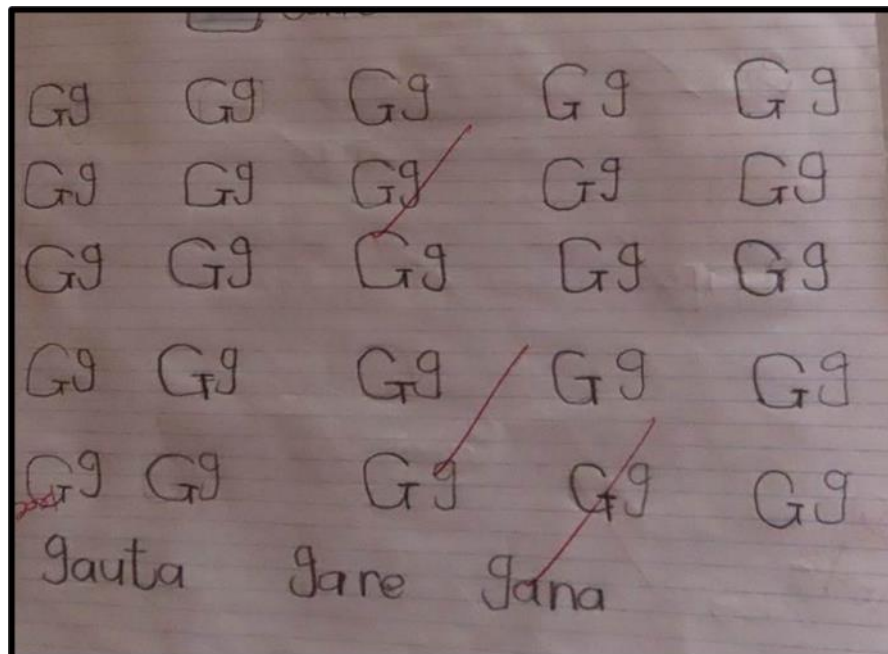 Gg Gg Gg Gg Gg
Gg Gg Gg Gg Gg
Gg Gg Gg Gg Gg
Gg Gg Gg Gg Gg
Gg Gg Gg Gg Gg
gauta gare gana